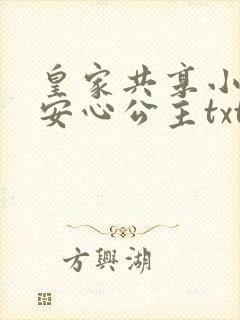 皇家共享小
安心公主txt
方興湖